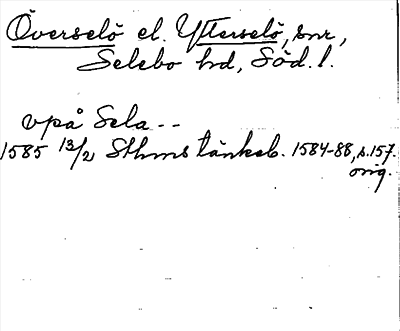 Överselö el. Ytterselö, snr,
Selebo hd, Söd. l.
vpå Sela--
1585 13/2 Sthms tänkeb. 1584-88, s. 157.
orig.